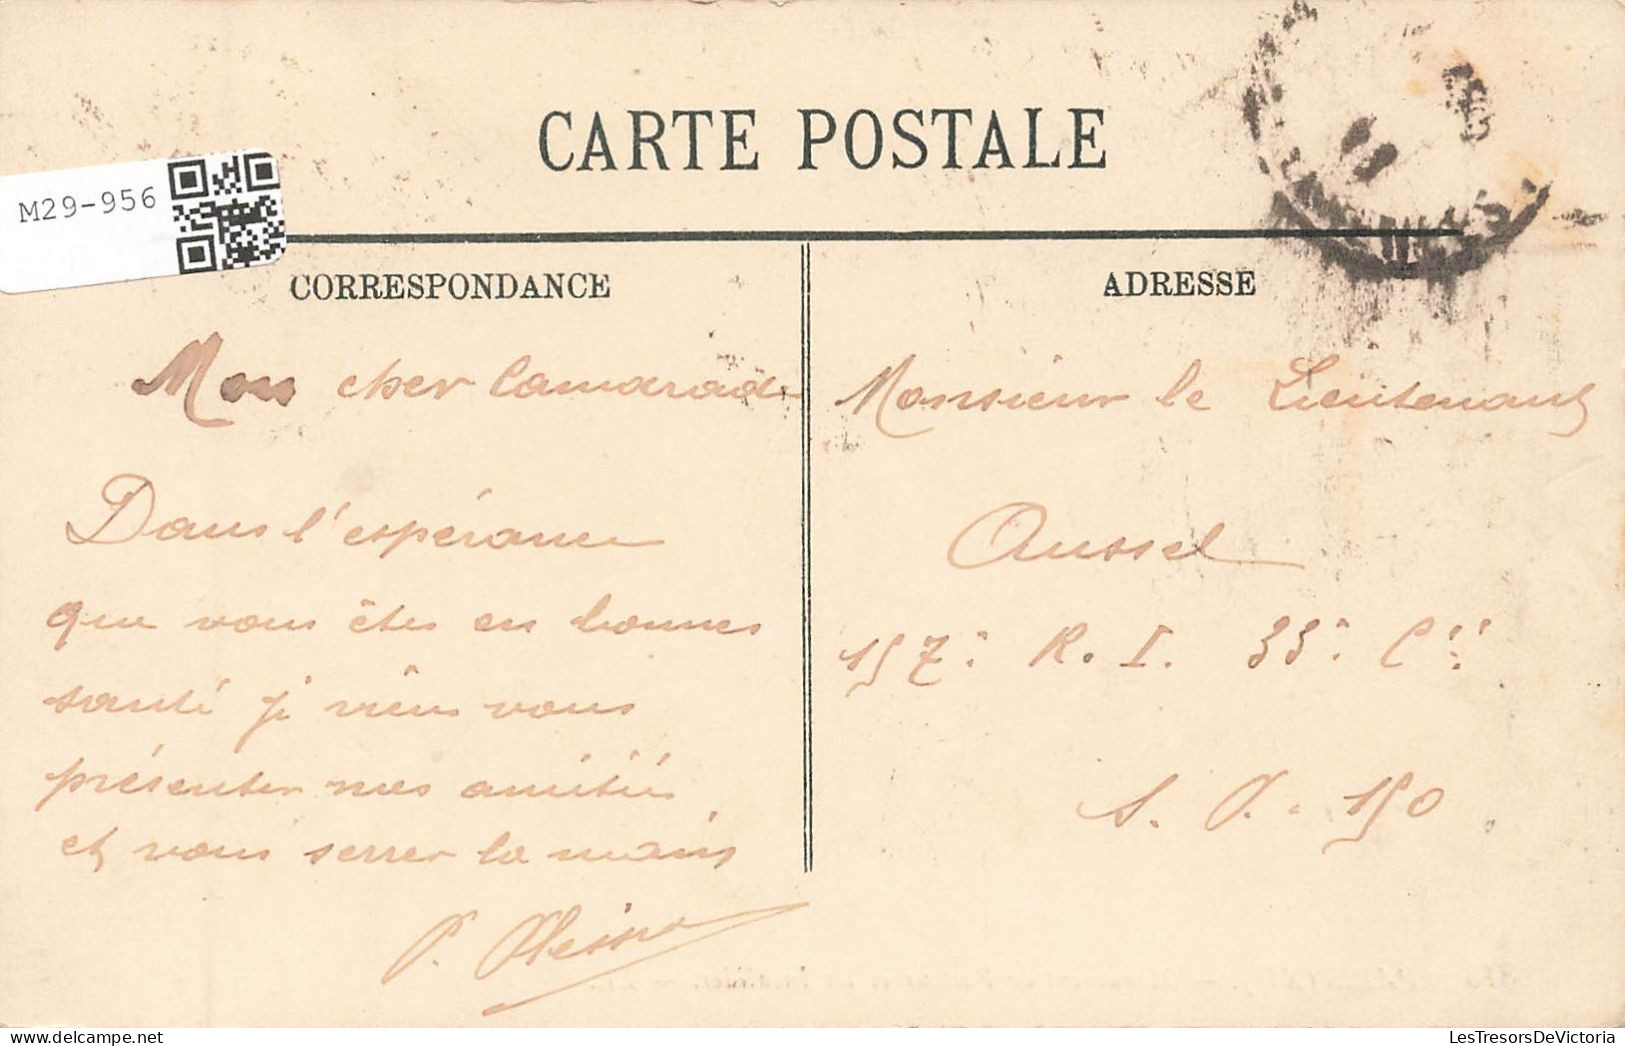 CARTE POSTALE
M29-956
CORRESPONDANCE
Mon cher Camarade
Dans l'espérance
que vous êtes en bonnes
santé je viens vous
présenter mes amitiés
et vous serrer la mains
ADRESSE
Monsieur le Lieutenant
Aussel
157e R. I. 33e Cie
S. P. 150
LesTresorsDeVictoria